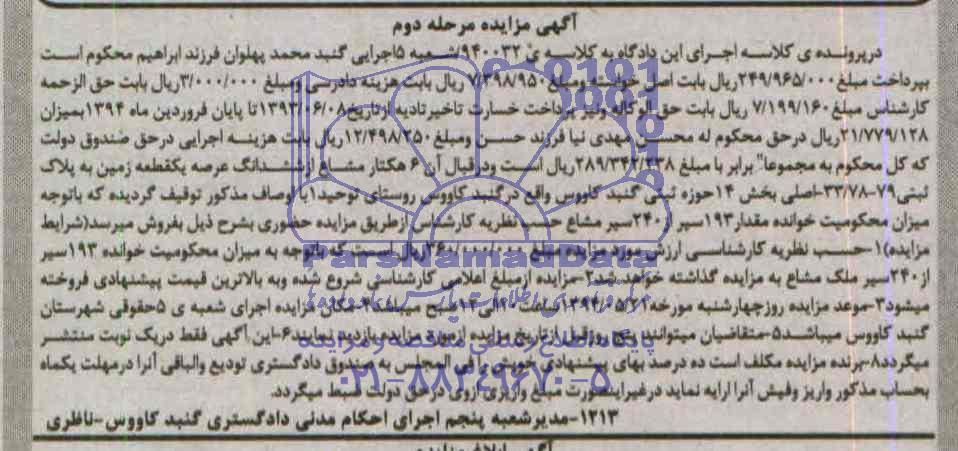 آگهی مزایده مرحله دوم
درپرونده ی کلاسه اجرای این دادگاه به کلاسه ی ۹۴۰۰۳۲/شعبه ۵اجرایی گنبد محمد پهلوان فرزند ابراهیم محکوم است
بپرداخت مبلغ ۲۴۹/۹۶۵/۰۰۰ریال بابت اصل خواسته ومبلغ ۷/۳۹۸/۹۵۰ ریال بابت هزینه دادرسی ومبلغ ۳/۰۰۰/۰۰۰ریال بابت حق الزحمه
کارشناس مبلغ ۷/۱۹۹/۱۶۰ ریال بابت حق الوکاله ونیز پرداخت خسارت تاخیرتادیه ازتاریخ۱۳۹۳/۰۶/۰۸تا پایان فروردین ماه ۱۳۹۴بمیزان
۲۱/۷۷۹/۱۲۸ریال درحق محکوم له محسن مهدی نیا فرزند حسن ومبلغ ۱۲/۴۹۸/۲۵۰ریال بابت هزینه اجرایی درحق صندوق دولت
که کل محکوم به مجموعا" برابر با مبلغ ۲۸۹/۳۴۲/۲۳۸ریال است ودرقبال آن ۶ هکتار مشاع ازششدانگ عرصه یکقطعه زمین به پلاک
ثبتی۷۹-۳۳/۷۸-اصلی بخش ۱۴حوزه ثبتی گنبد کاووس واقع درگنبد کاووس روستای توحید۱با اوصاف مذکور توقیف گردیده که باتوجه
میزان محکومیت خوانده مقدار۱۹۳سیر از۲۴۰سیر مشاع حسب نظریه کارشناسی ازطریق مزایده حضوری بشرح ذیل بفروش میرسد(شرایط
مزایده)۱-حسب نظریه کارشناسی ارزش مورد مزایده مبلغ ۳۶۰/۰۰۰/۰۰۰ریال است که باتوجه به میزان محکومیت خوانده ۱۹۳سیر
از۲۴۰سیر ملک مشاع به مزایده گذاشته خواهد شد۲-مزایده ازمبلغ اعلامی کارشناسی شروع شده وبه بالاترین قیمت پیشنهادی فروخته
میشود۳-موعد مزایده روزچهارشنبه مورخه ۱۳۹۴/۰۵/۲۱ساعت ۱۰الی۱۲صبح میباشد۴-مکان مزایده اجرای شعبه ی ۵حقوقی شهرستان
گنبد کاووس میباشد۵-متقاضیان میتوانند روزقبل ازتاریخ مزایده ازمورد مزایده بازدید نمایند۶-این آگهی فقط دریک نوبت منتشر
میگردد۸-برنده مزایده مکلف است ده درصد بهای پیشنهادی خویش را فی المجلس به صندوق دادگستری تودیع والباقی آنرا درمهلت یکماه
بحساب مذکور واریز وفیش آنرا ارایه نماید درغیراینصورت مبلغ واریزی ازوی درحق دولت ضبط میگردد.
۱۲۱۳-مدیرشعبه پنجم اجرای احکام مدنی دادگستری گنبد کاووس-ناظری
ParsNamadData
۰۲۱-۸۸۳۴۹۶۷۰-۵